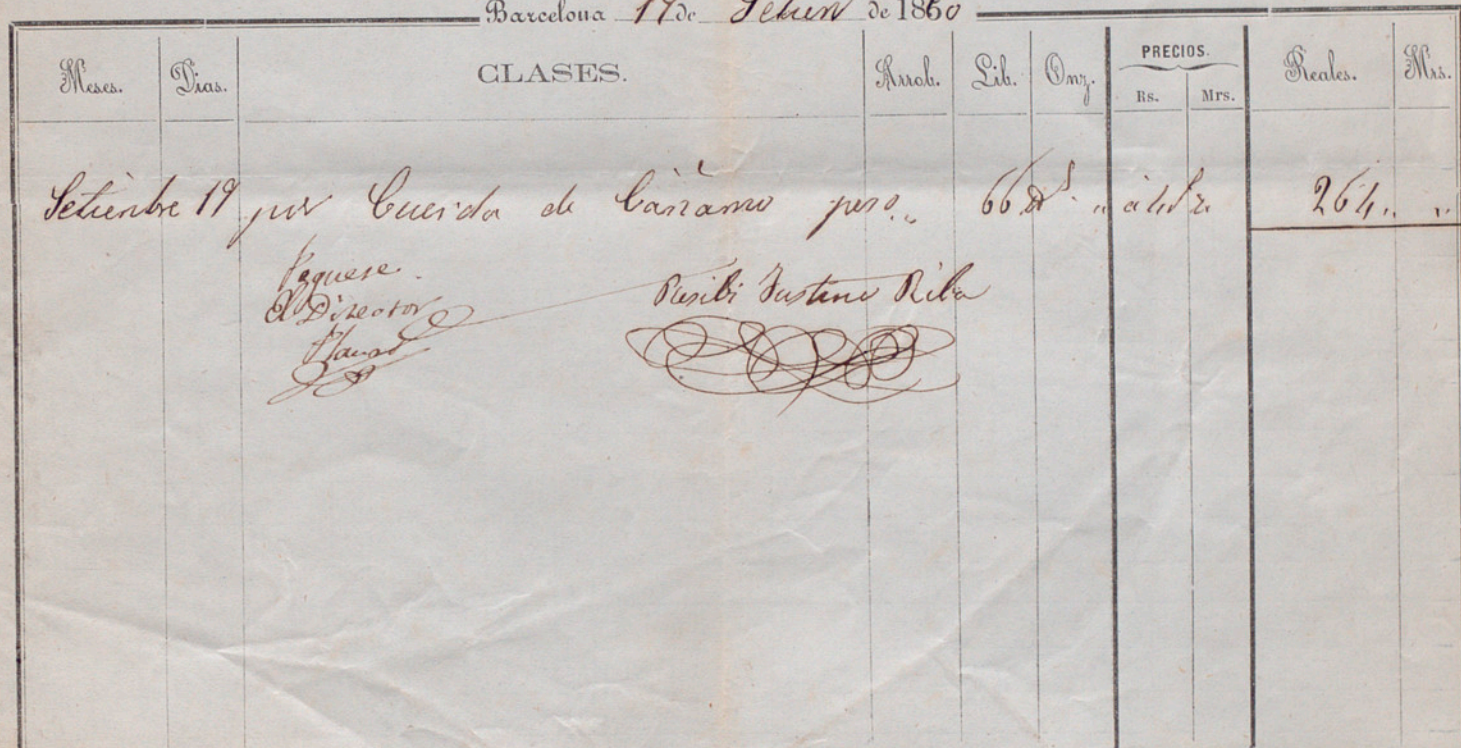 Barcelona 19 de Setien de 1860
Meses. Dias. CLASES. Arrob. Lib. Onz. PRECIOS. Reales. Mrs.
Rs. Mrs.
Setiembre 19 por Cuerda de Cáñamo peso „ 66 „ á 4 264 „ „
Paguese.
El Director
Recibi Justino Riba